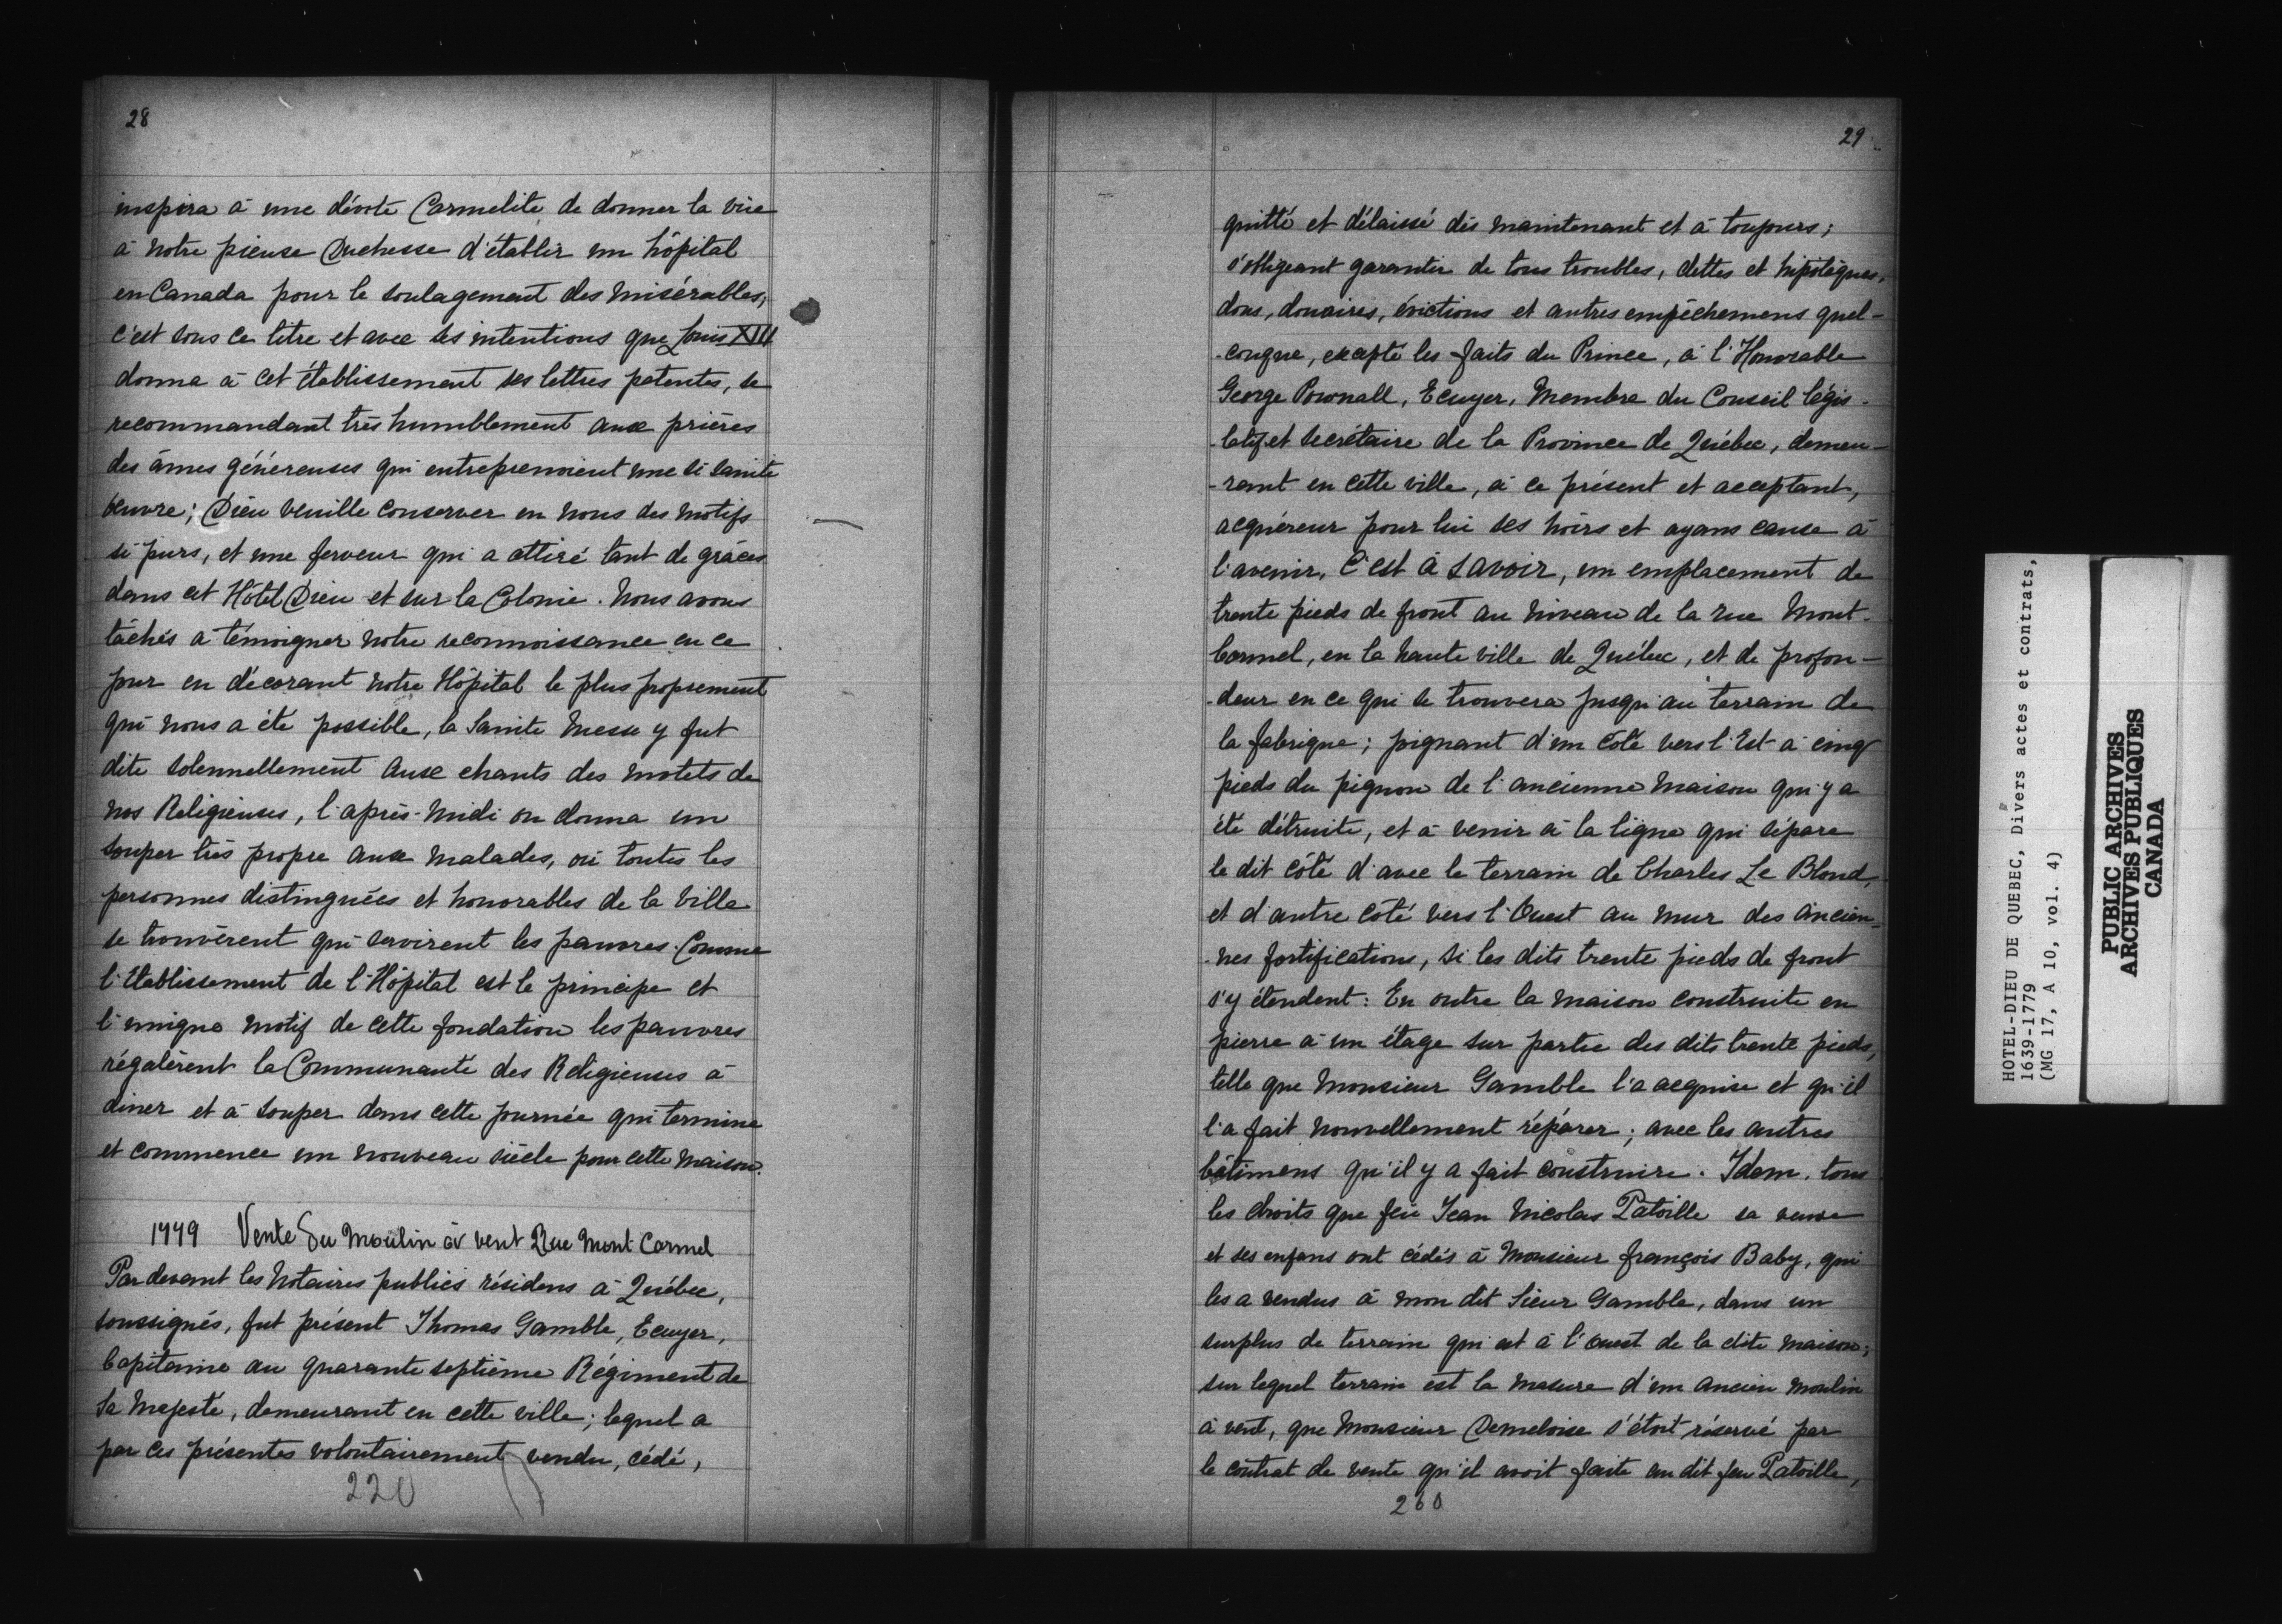 28
inspira à une dévote Carmelite de donner la vüe
à notre pieuse Duchesse d'établir un hôpital
en Canada pour le soulagement des misérables,
c'est sous ce titre et avec ses intentions que Louis XIII
donna à cet établissement ses lettres patentes, se
recommandant très humblement aux prières
des âmes généreuses qui entreprenoient une si sainte
œuvre; Dieu veuille conserver en nous des motifs
si purs, et une ferveur qui a attiré tant de grâces
dans cet Hôtel Dieu et sur la Colonie. Nous avons
tâchés a témoigner notre reconnoissance en ce
jour en décorant notre Hôpital le plus proprement
qui nous a été possible, la Sainte Messe y fut
dite solennellement aux chants des motets de
nos Religieuses, l'après-midi on donna un
souper très propre aux malades, où toutes les
personnes distinguées et honorables de la Ville
se trouvèrent qui servirent les pauvres. Comme
l'Etablissement de l'Hôpital est le principe et
l'unique motif de cette fondation les pauvres
régalèrent la Communauté des Religieuses à
diner et à souper dans cette journée qui termine
et commence un nouveau siècle pour cette maison.
1779 Vente du Moulin à vent Rue Mont Carmel
Par devant les Notaires publics résidens à Québec,
soussignés, fut présent Thomas Gamble, Ecuyer,
Capitaine au quarante septième Régiment de
Sa Majesté, demeurant en cette ville; lequel a
par ces présentes volontairement vendu, cédé,
220
29
quitté et délaissé dès maintenant et à toujours;
s'obligeant garantir de tous troubles, dettes et hipotèques,
dons, douaires, évictions et autres empêchemens quel-
-conque, excepté les faits du Prince, à l'Honorable
George Pownall, Ecuyer, Membre du Conseil légis-
-latif et Secrétaire de la Province de Québec, demeu-
-rant en cette ville, à ce présent et acceptant,
acquéreur pour lui ses hoirs et ayans cause à
l'avenir, C'est à savoir, un emplacement de
trente pieds de front au niveau de la rue Mont-
Carmel, en la haute ville de Québec, et de profon-
-deur en ce qui se trouvera jusqu'au terrain de
la fabrique; joignant d'un côté vers l'Est à cinq
pieds du pignon de l'ancienne maison qui y a
été détruite, et à venir à la ligne qui sépare
le dit côté d'avec le terrain de Charles Le Blond,
et d'autre côté vers l'Ouest au mur des ancien-
-nes fortifications, si les dits trente pieds de front
s'y étendent: En outre la maison construite en
pierre à un étage sur partie des dits trente pieds,
telle que Monsieur Gamble l'a acquise et qu'il
l'a fait nouvellement réparer; avec les autres
bâtimens qu'il y a fait construire. Idem, tous
les droits que feu Jean Nicolas Patoille sa veuve
et ses enfans ont cédés à Monsieur François Baby, qui
les a vendus à mon dit Sieur Gamble, dans un
surplus de terrain qui est à l'ouest de la dite maison;
sur lequel terrain est la masure d'un ancien moulin
à vent, que Monsieur Demeloise s'étoit réservé par
le contrat de vente qu'il avoit faite au dit feu Patoille,
260
HOTEL-DIEU DE QUEBEC, Divers actes et contrats,
1639-1779
(MG 17, A 10, vol. 4)
PUBLIC ARCHIVES
ARCHIVES PUBLIQUES
CANADA